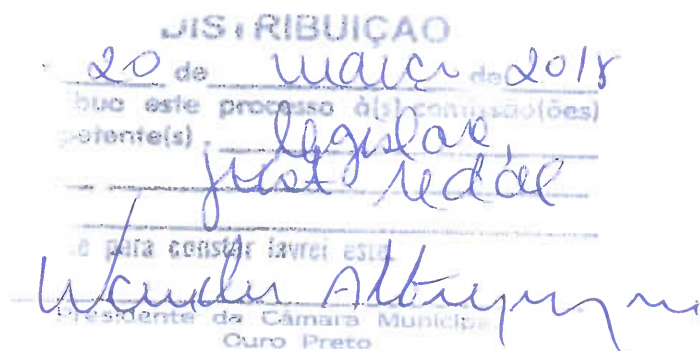 DISTRIBUIÇÃO
20 de março de 2018
buo este processo à(s) comissão(ões)
petente(s), legislar,
just redac
e para constar lavrei este.
Wander Albuquerque
Presidente da Câmara Municipa
Ouro Preto